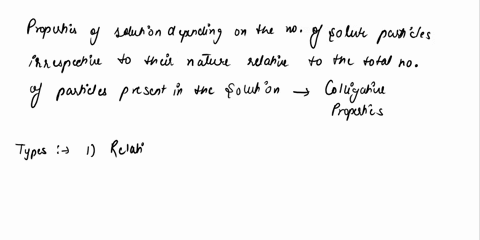 Properties of solution depending on the no. of solute particles
irrespective to their nature relative to the total no.
of particles present in the solution → Colligative
Properties
Types :→ 1) Relati